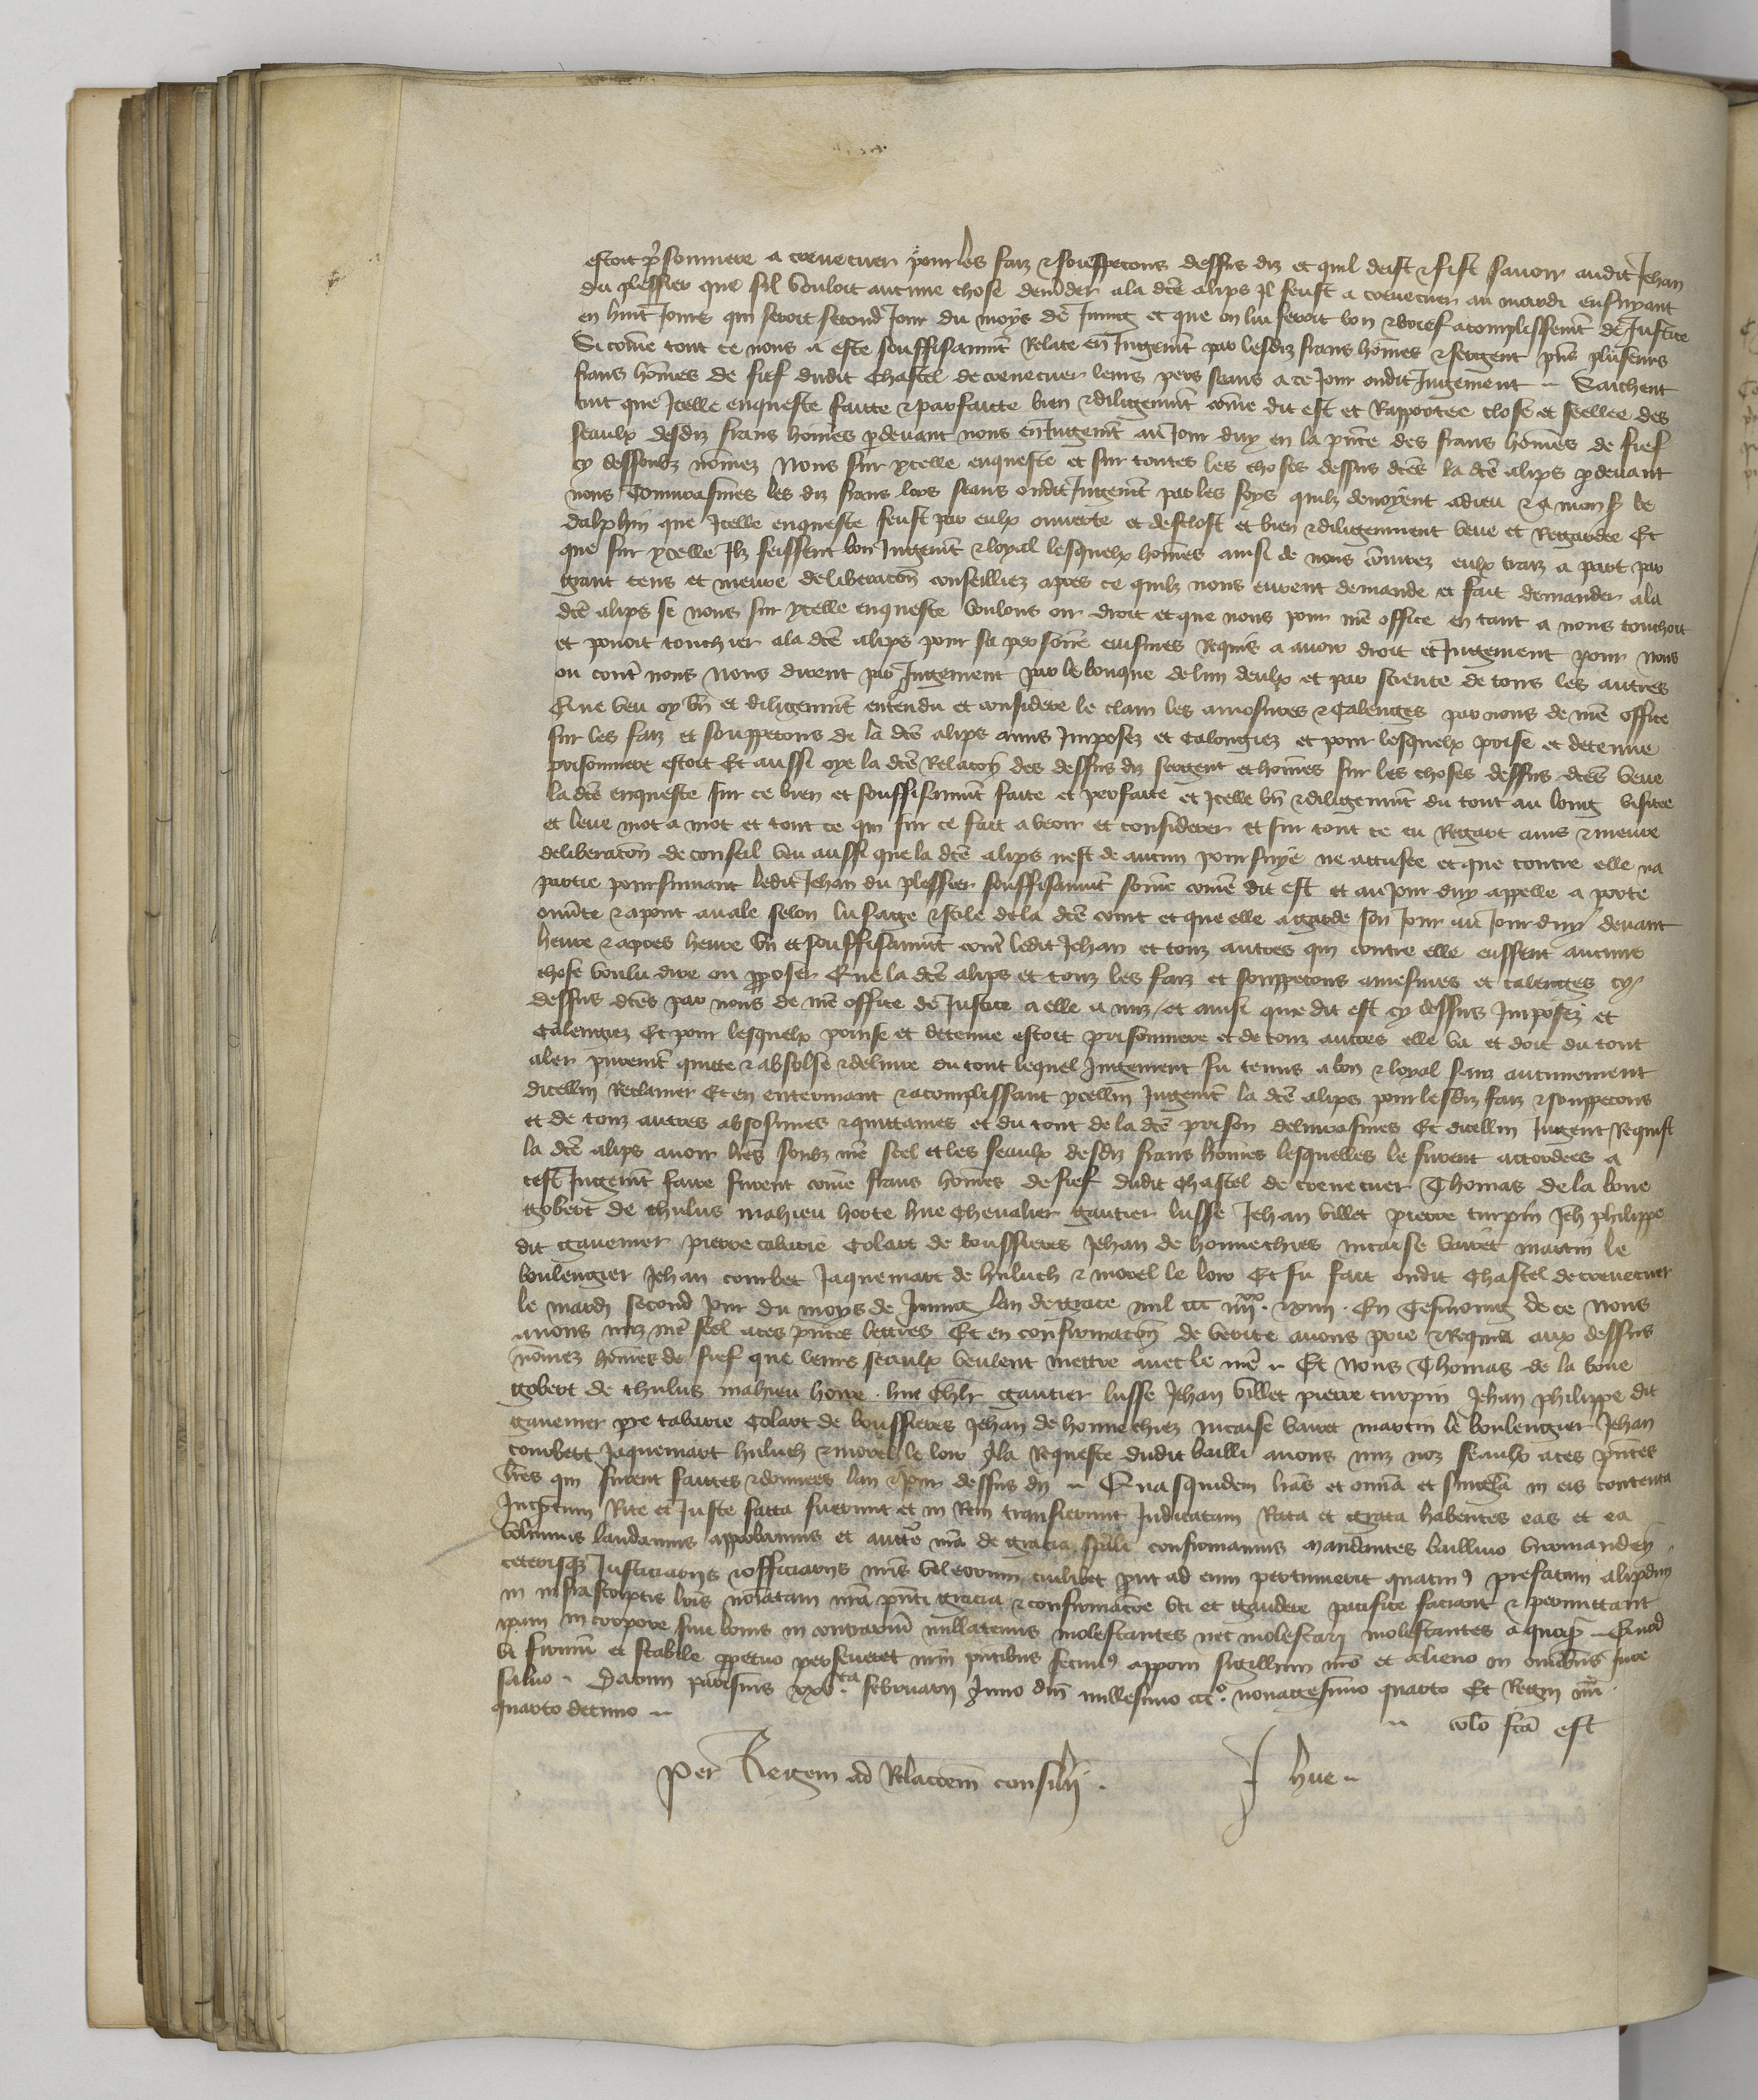 estoit p̃sonniere a crevecuer pour les faiz & souspecons dessus diz et quil deist & fist savoir audit Jehan
du plessier que sil vouloit aucune chose dem̃der a la dc̃e alips Il feust a crevecuer au mardi ensuyant
en huit Jours qui seroit second Jour du moys de Juing et que on lui feroit bon & brief acomplissemẽt de Justice
Si com̃e tout ce nous a este souffisanmẽt Relate en Jugemẽt par lesdiz frans hom̃es & sergent p̃ns pluseurs
frans hom̃es de fief dudit Chastel de crevecuer leurs pers seans a ce Jour oudit Jugement Saichent
tuit que Icelle enqueste faitte & parfaitte bien & diligenmẽt com̃e dit est et Rapportee close et seellee des
seaulx desdiz frans hom̃es p̱devant nous en Jugemẽt au Jour duy en la p̃nce des frans hom̃es de fief
cy dessoubz nom̃ez Nous sur ycelle enqueste et sur toutes les choses dessus dc̃es la dc̃e alips p̱devant
nous Conjurasmes les diz frans lors seans oudit Jugemẽt par les foys quilz devoyent a dieu & a mons̃ le
dalphin que Icelle enqueste feust par eulx ouverte et desclost et bien & diligemment veue et Regardee Et
que sur ycelle Ilz feissent bon Jugemẽt & loyal lesquelx hom̃es ainsi de nous com̃jurez eulx traiz a part par
grant tens et meure deliberacon̄ conseilliez apres ce quilz nous eurent demande et fait demander a la
dc̃e alips se nous sur ycelle enqueste voulons oir droit et que nous pour nr̃e office en tant a nous touchoit
et pouoit touchier a la dc̃e alips pour sa person̄e eusmes Requis a avoir droit et Jugement pour nous
ou cont̃ nous Nous dirent par Jugement par le bouque de lun deulx et par sciente de tous les autres
Que veu oy bn̄ et diligenmẽt entendu et considere le claim les amesures & Calenges par nous de nr̃e office
sur les faiz et souppecons de la dc̃e alips a mis Imposez et Calongiez et pour lesquelx prise et detenue
prisonniere estoit Et aussi oye la dc̃e Relacoñ des dessus diz sergent et hom̃es sur les choses dessus dc̃es veue
la dc̃e enqueste sur ce bien et souffisanmẽt faite et perfaitte et Icelle bn̄ & diligenmẽt du tout au long visitee
et leue mot a mot et tout ce qui sur ce fait a veoir et considerer et sur tout ce eu Regart avis & meure
deliberacon̄ de conseil veu aussi que la dc̃e alips nest de aucun poursuye ne accusee et que contre elle na
partie poursuivant ledit Jehan du plessier souffisanmẽt som̃e com̃e dit est et au Jour duy appelle a porte
ouv̄te & a pont avale selon lusaige & stile de la dc̃e court et que elle a garde son Jour au Jour duy devant
heure & apres heure bn̄ et souffisanmẽt cont̃ ledit Jehan et touz autres qui contre elle eussent aucune
chose voulu dire ou p̱poser Que la dc̃e alips et touz les faiz et souppecons amesures et calenges cy
dessus dc̃es par nous de nr̃e office de Justice a elle a miz et ainsi que dit est cy dessus Imposez et
Calengiez Et pour lesquelx prinse et detenue estoit prisonniere et de touz autres elle va et doit du tout
aler puremẽt quitte & absolse & delivre du tout lequel Jugement fu tenus a bon & loyal sanz aucunement
dicellui Reclamer Et en enterinant & acomplissant ycellui Jugemẽt la dc̃e alips pour lesdiz faiz & souppecons
et de touz autres absosimes & quittames et du tout de la dc̃e prison delivrasmes Et dicellui Jugemt Requist
la dc̃e alips avoir lr̃es soubz nr̃e seel et les seaulx desdiz frans hom̃es lesquelles le furent accordees a
cest Jugemẽt faire furent com̃e frans hom̃es de fief dudit Chastel de crevecuer Thomas de la boue
Robert de thulus mahieu horte hue Chevalier gautier lusse Jehan villet pierre turpin Jeh philippe
dit gavenier pierre cabarie Colart de boussieres Jehan de honnechies nicaise bairet martin le
boulengier Jehan combet Jaquemart de huluch & morel le lour Et fu fait oudit Chastel de crevecuer
le mardj second Jour du moys de Juing lan de grace mil ccc iiiixx. xiiii. En Tesmoing de ce Nous
avons miz nr̃e seel a ces p̃ntes lettres Et en confirmacon̄ de verite avons prie & Requis aux dessus
nom̃ez hom̃es de fief que leurs seaulx veulent mettre avec le nr̃e Et Nous Thomas de la boue
Robert de thulus mahieu horte . hue Chlr̃ gautier lusse Jehan villet pierre turpin Jehan philippe dit
gavenier pr̃e cabarie Colart de boussieres Jehan de honnechiez nicaise bairet martin le boulengier Jehan
combett Jaquemart huluch & morel le lour A la Requeste dudit bailli avons miz noz seaulx a ces p̃ntes
lr̃es qui furent faittes & donnees lan & Jour dessus dj Quasquidem lr̃as et om̃ia et singl̃a in eis contenta
Inq̃ntum Rite et Juste facta fuerunt et in Rem transierunt Judicatam Rata et grata habentes eas et ea
volumus laudamus approbamus et auctẽ nr̃a de gracia sp̃ali confirmamus Mandantes ballivo viromanden̄
ceterisq̃ Justiciarijs & officiarijs nr̃is vel eorum cuilibet p̱ut ad eum pertinuerit quatinꝰ prefatam alipdim
in infrascriptis lr̃is nom̃iatam nr̃a p̃nti gracia & confirmac̃oe uti et gaudere pacifice faciant & permittant
ipam in corpore sive bonis in contrariũ nullatenus molestantes nec molestarj molestantes a quoq̃ Quod
ut firmũ et stabile p̱petuo perseveret nr̃m p̃ntibus fecimꝰ apponi sigillum nr̃o et alieno in om̃ibus iure
salvo Datum parisius xxvta. februarij Anno dn̄i millesimo ccco. nonagesimo quarto Et Regni nr̃i
quarto decimo
collõ fc̃a est
Per Regem ad Relac̃oem consilij . J hue